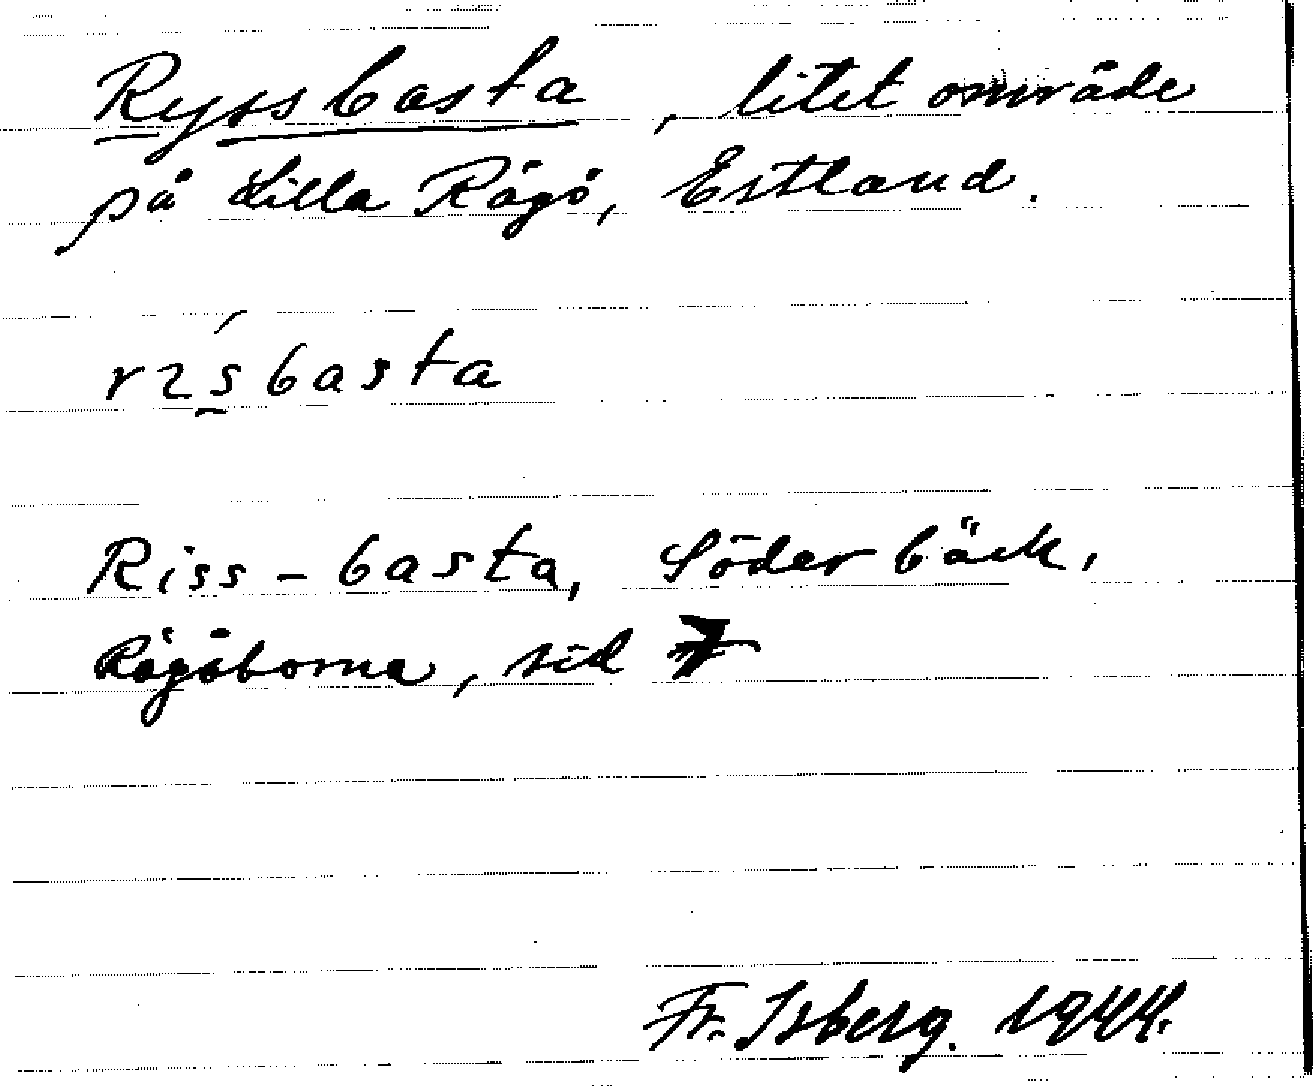 Ryssbasta, litet område
på Lilla Rågö, Estland.
rɪśbasta
Riss-basta, Söderbäck,
Rågöborna, sid 7
Fr. Isberg. 1944.